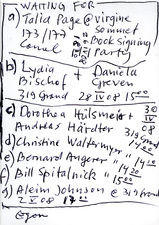 WAITING FOR
a) Talia Page @ virgine
173/177 sommet
Canal Book signing
Party
b) Lydia + Daniela
Bischof Greven
319 Grand 28 IV 08 15⁰⁰
c) Dorothea Hülsmeier + 30
Andreas Härdter IV 08
319 Grand
d) Christine Waltermyer " 14⁰⁰
e) Bernard Angerer " 14²⁰
f) Bill Spitalnick " 15⁰⁰
g) Aleim Johnson @ 319 Grand
2 V 08